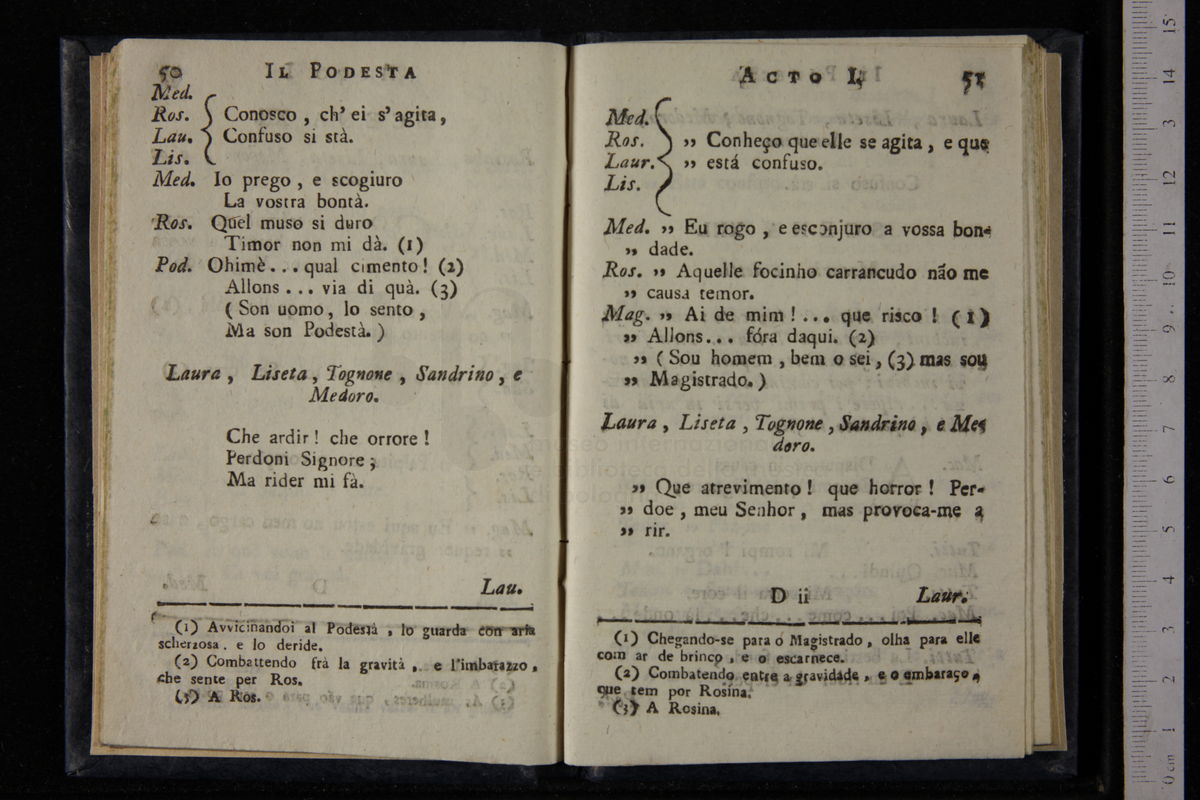 50 IL PODESTA
Med.
Ros. Conosco , ch' ei s' agita,
Lau. Confuso si stà.
Lis.
Med. Io prego , e scogiuro
La vostra bontà.
Ros. Quel muso si duro
Timor non mi dà. (1)
Pod. Ohimè... qual cimento! (2)
Allons... via di quà. (3)
( Son uomo, lo sento ,
Ma son Podestà. )
Laura , Liseta, Tognone , Sandrino, e
Medoro.
Che ardir! che orrore!
Perdoni Signore;
Ma rider mi fà.
Lau.
(1) Avvicinandoi al Podestà , lo guarda con aria
scherzosa. e lo deride.
(2) Combattendo frà la gravità , e l'imbarazzo ,
che sente per Ros.
(3) A Ros.
ACTO I. 51
Med.
Ros. ,, Conheço que elle se agita , e que
Laur. ,, está confuso.
Lis.
Med. ,, Eu rogo , e esconjuro a vossa bon-
,, dade.
Ros. ,, Aquelle focinho carrancudo não me
,, causa temor.
Mag. ,, Ai de mim !... que risco ! (1)
,, Allons... fóra daqui. (2)
,, ( Sou homem , bem o sei, (3) mas sou
,, Magistrado. )
Laura , Liseta , Tognone, Sandrino, e Me-
doro.
,, Que atrevimento! que horror! Per-
,, doe , meu Senhor, mas provoca-me a
,, rir.
D ii Laur.
(1) Chegando-se para o Magistrado, olha para elle
com ar de brinco , e o escarnece.
(2) Combatendo entre a gravidade , e o embaraço,
que tem por Rosina.
(3) A Rosina.